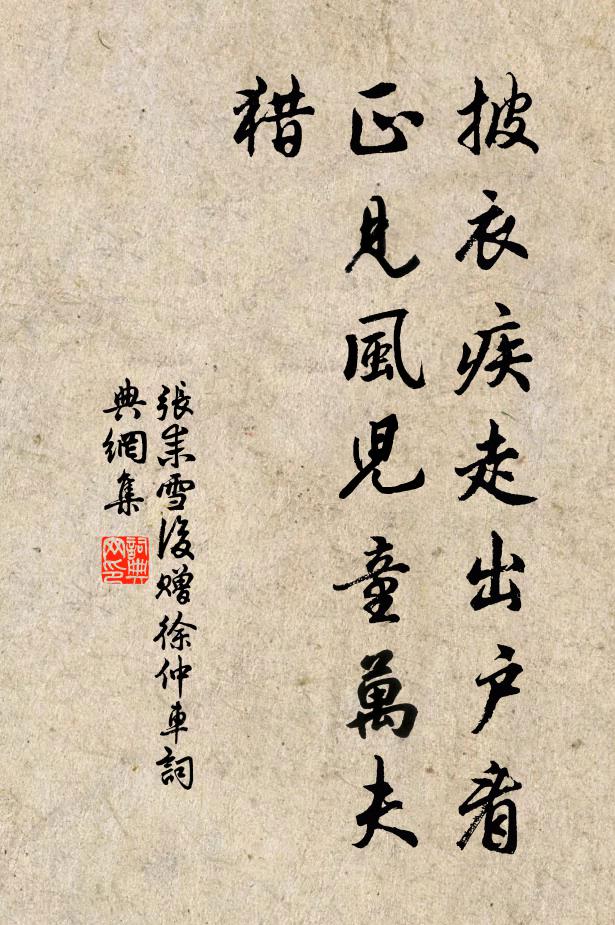 披衣疾走出户看
正見風児童萬夫
猎
張耒雪後贈徐仲車詞
典網集
詞典
网印